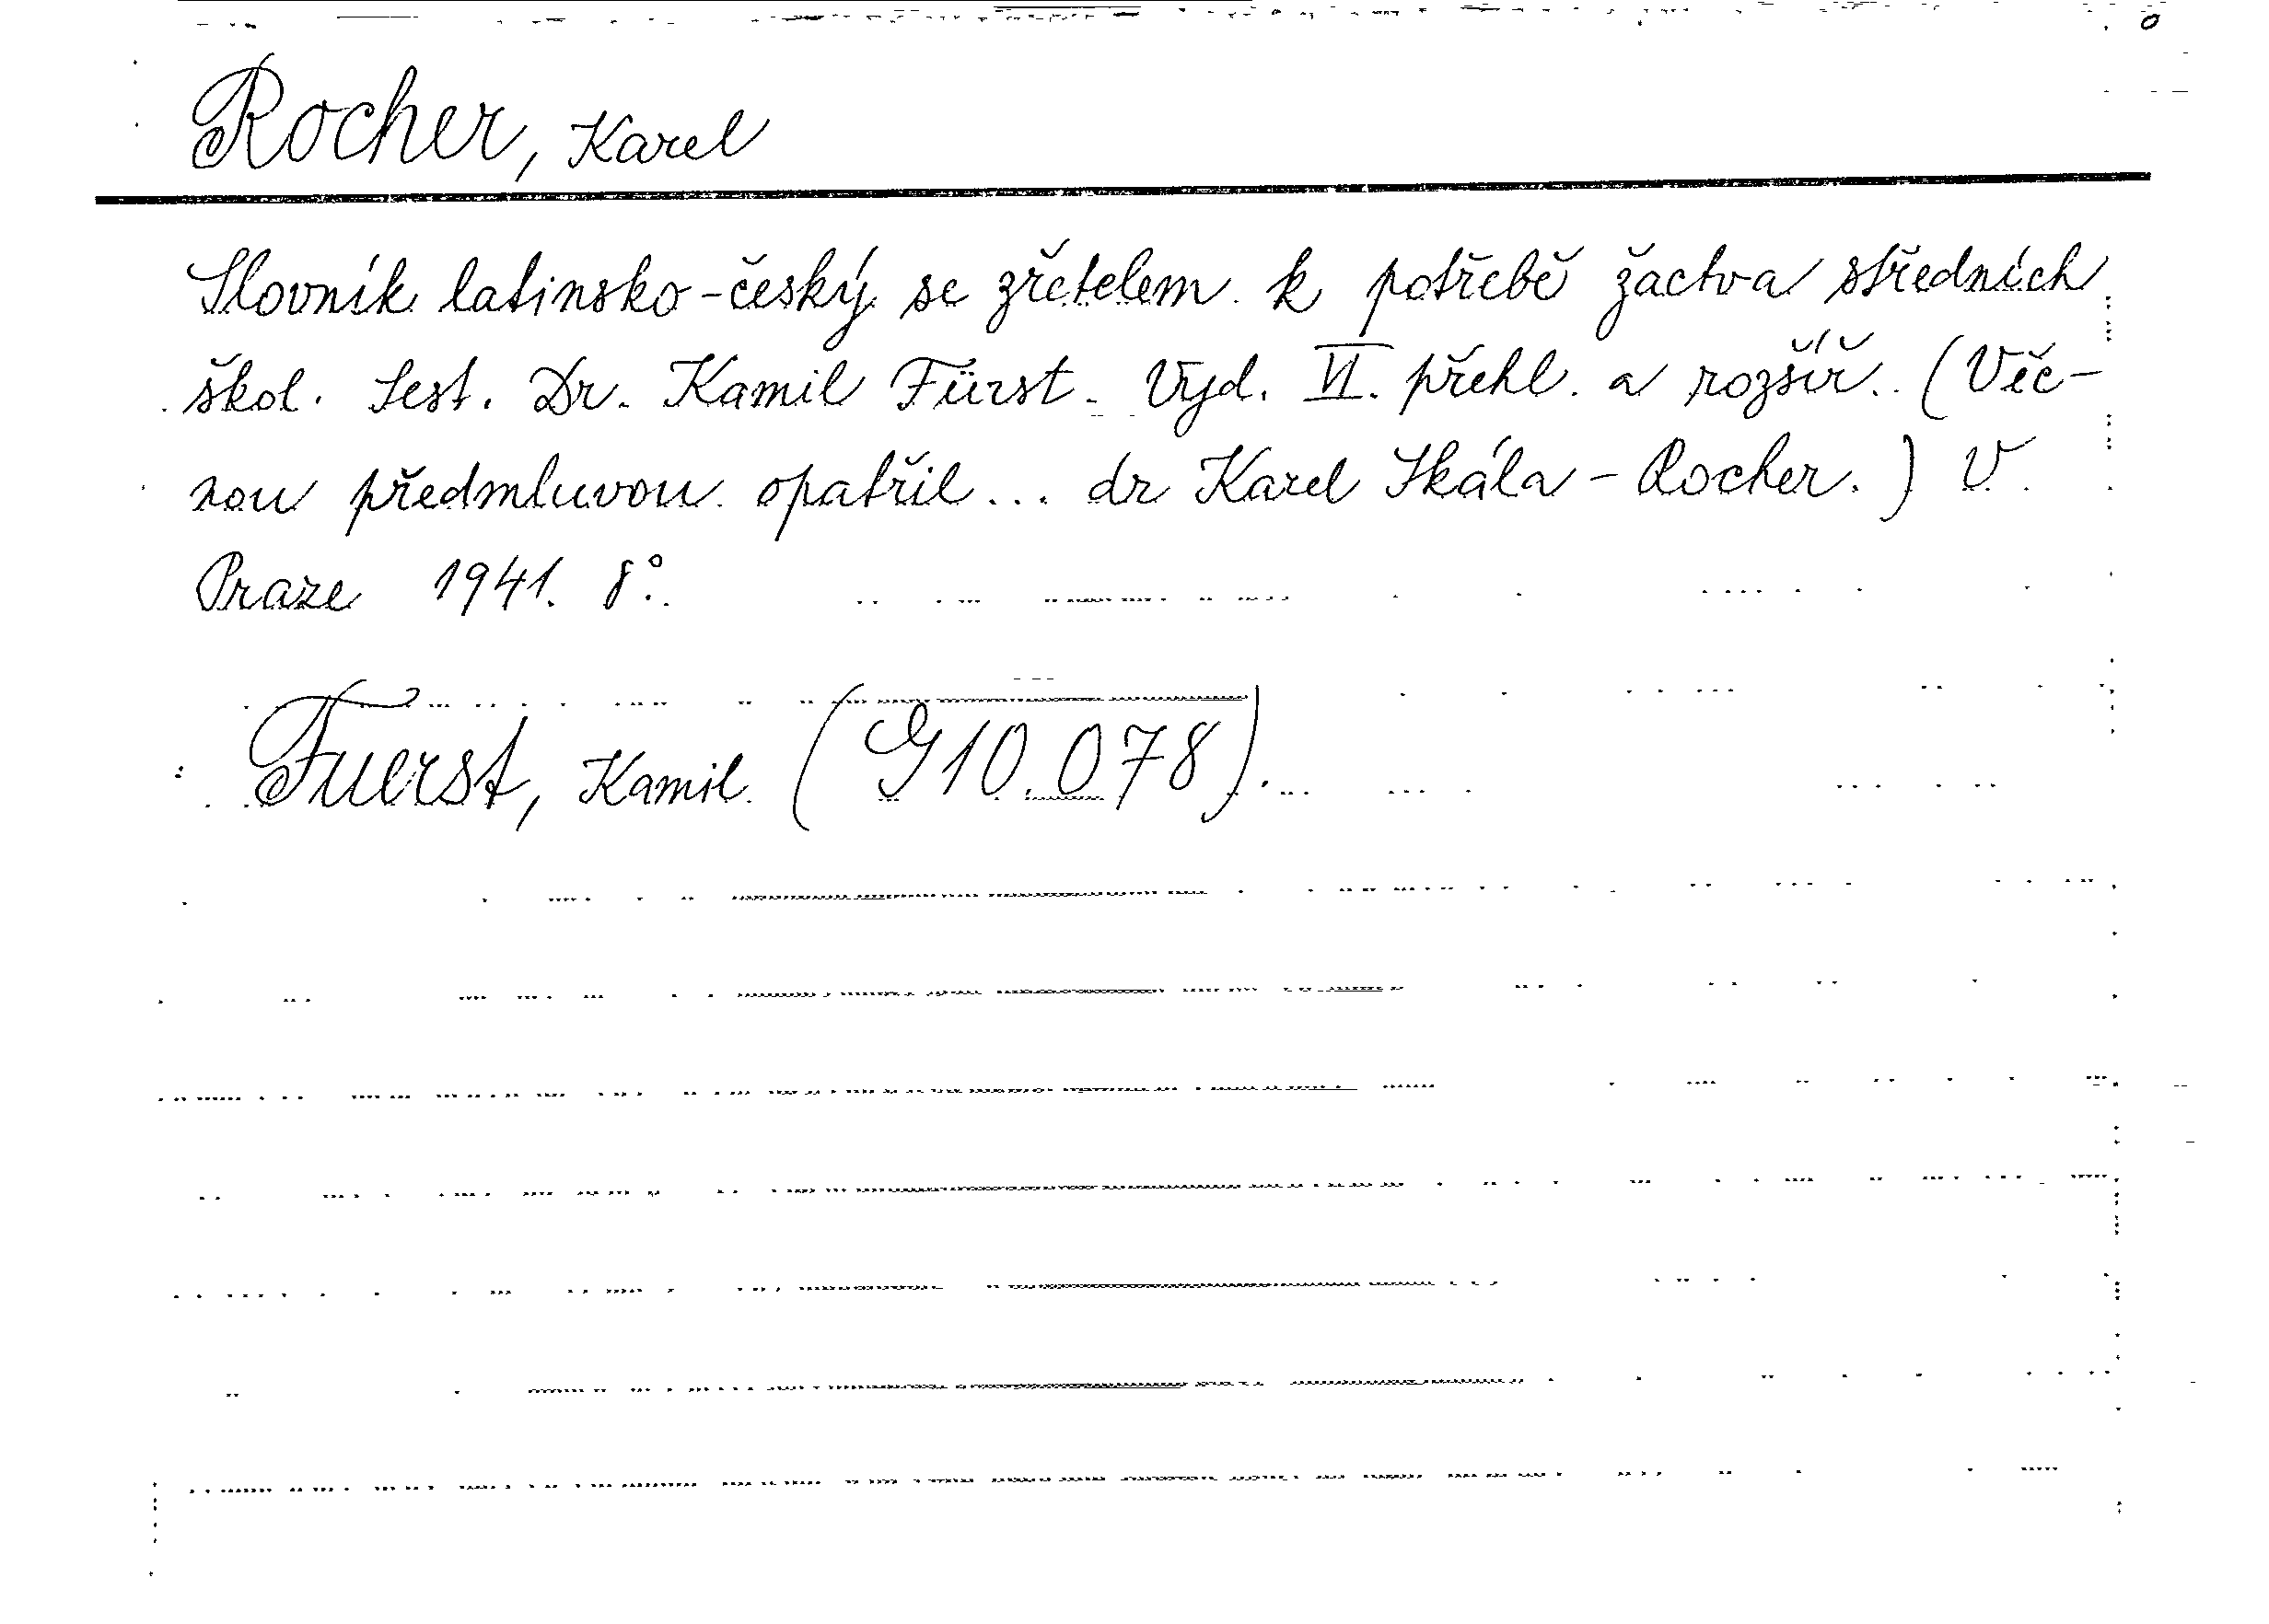 Rocher, Karel
Slovník latinsko-český se zřetelem k potřebě žactva středních
škol. Sest. Dr. Kamil Fürst. Vyd. VI. přehl. a rozšíř. (Věc-
nou předmluvou opatřil... dr Karel Skála-Rocher.) V
Praze 1941. 8°.
Fuerst, Kamil (G10.078).